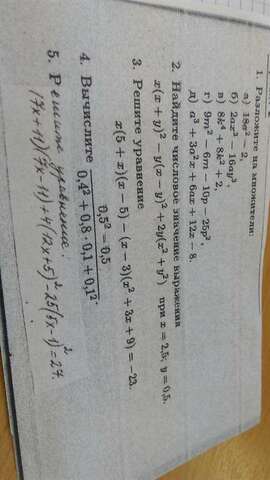 1. Разложите на множители:
а) 18a² − 2,
б) 2ax³ − 16ay³,
в) 8k⁴ + 8k² + 2,
г) 9m² − 6m − 10p − 25p²,
д) a³ + 3a²x + 6ax + 12x − 8.
2. Найдите числовое значение выражения
x(x + y)² − y(x − y)² + 2y(x² + y²) при x = 2,5; y = 0,5.
3. Решите уравнение
x(5 + x)(x − 5) − (x − 3)(x² + 3x + 9) = −23.
4. Вычислите
0,5² − 0,5
0,4² + 0,8 · 0,1 + 0,1².
5. Решите уравнение:
(7x+11)(7x−11)+4(12x+5)²−25(5x−1)²=27.